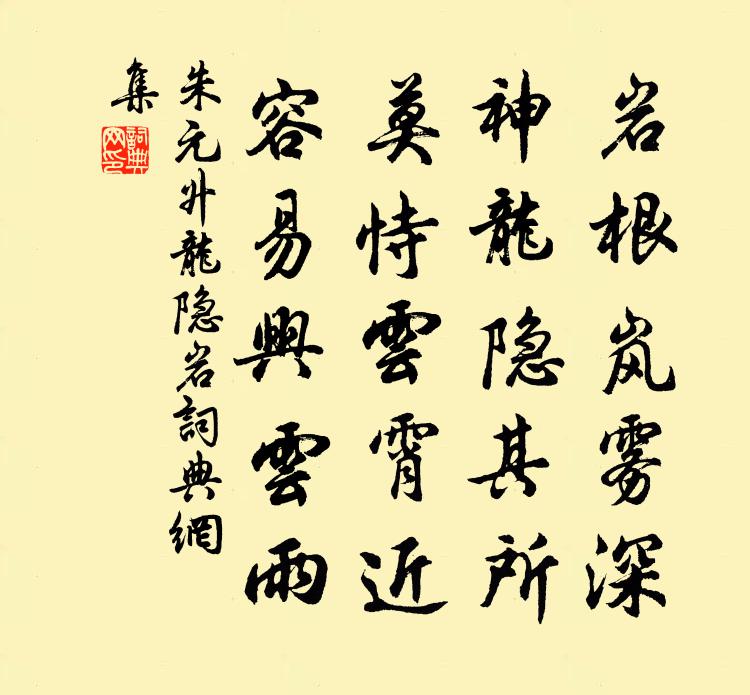 岩根岚雾深
神龍隐其所
莫恃雲霄近
容易興雲雨
朱元升龍隐岩詞典網
集
詞典
网印